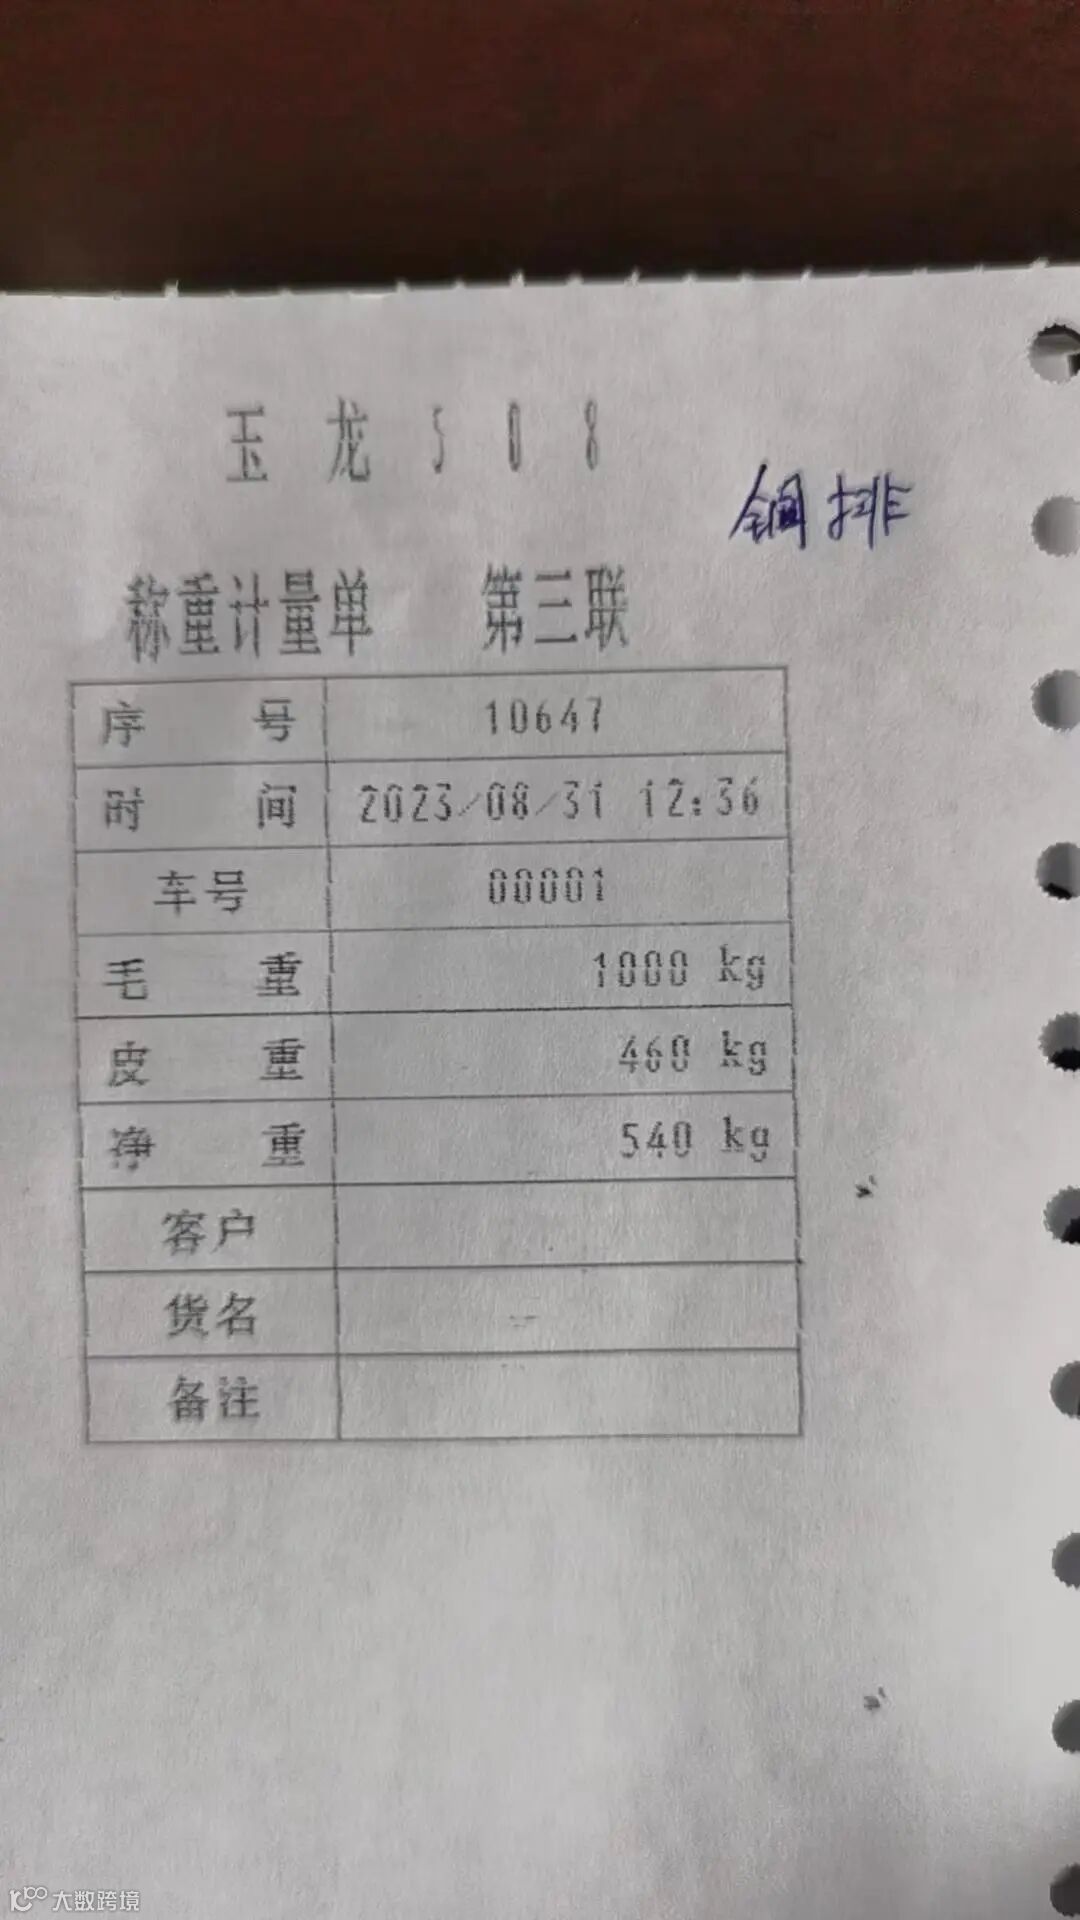 玉龙508
铜排
称重计量单 第三联
序号 10647
时间 2023/08/31 12:36
车号 00001
毛重 1000 kg
皮重 460 kg
净重 540 kg
客户
货名
备注
大数跨境